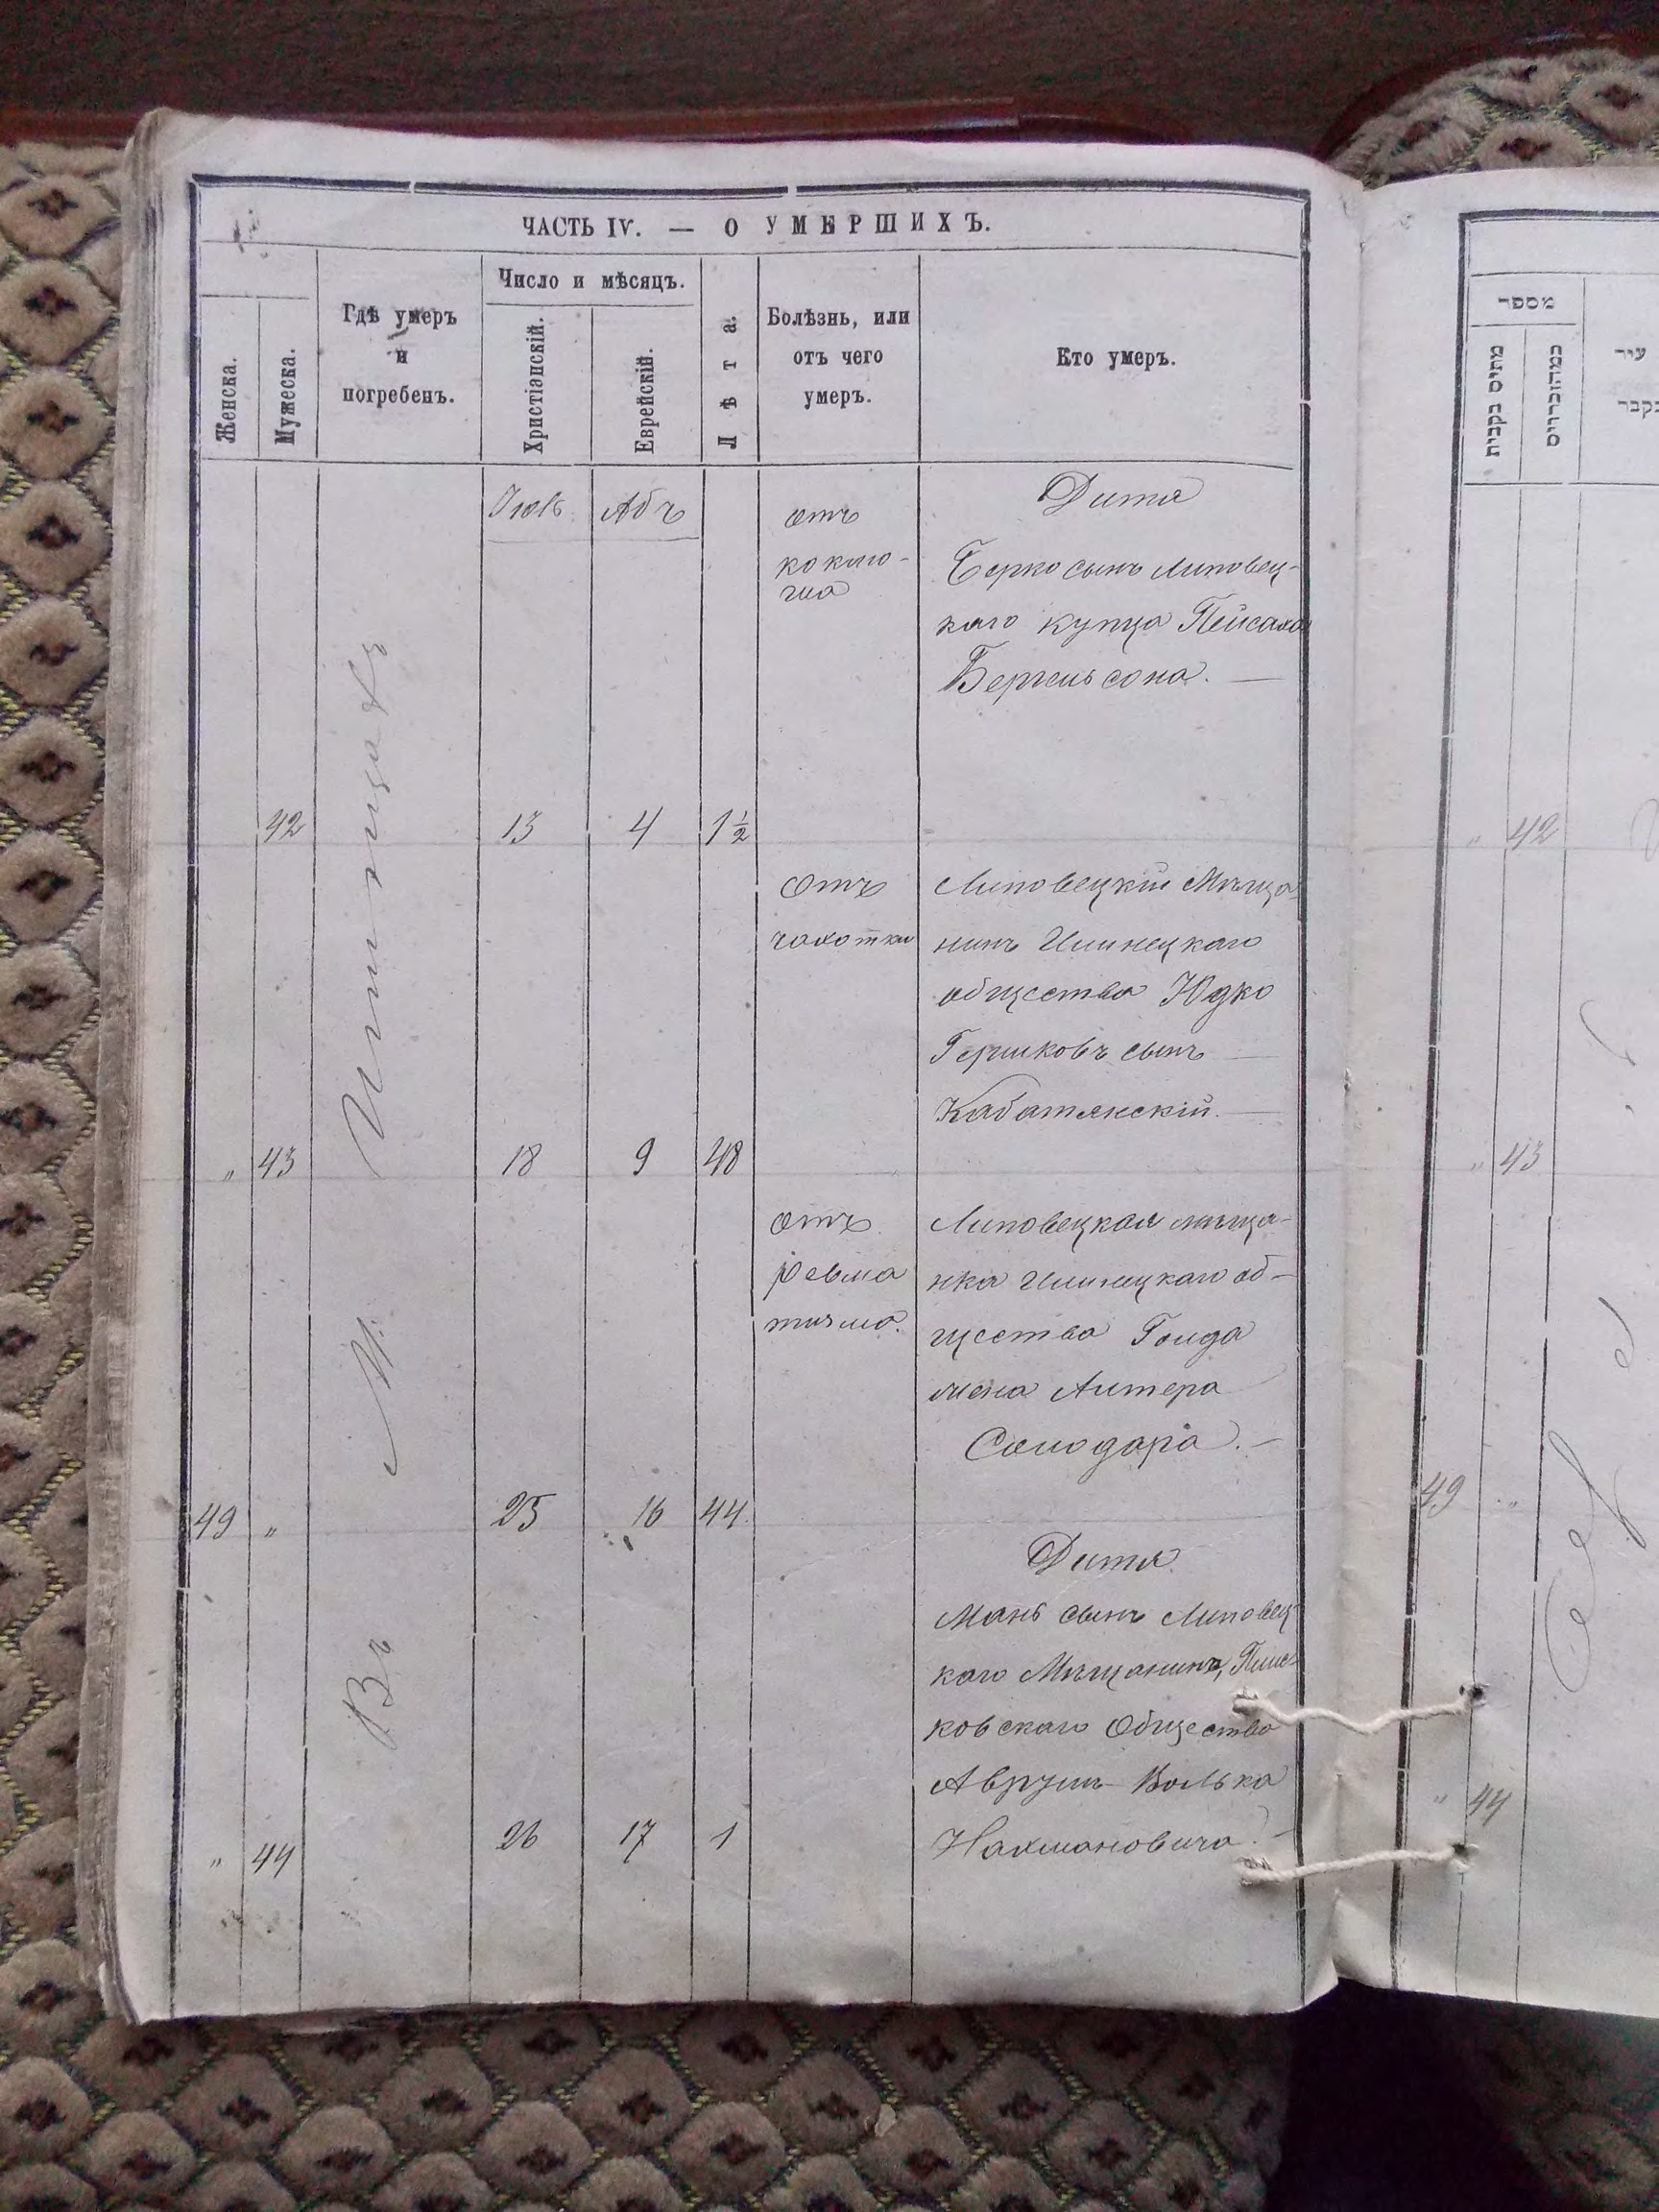 ЧАСТЬ IV. — О УМЕРШИХЪ.
Женска.
Мужеска.
Гдѣ умеръ
и
погребенъ.
Число и мѣсяцъ.
Христіанскій.
Еврейскій.
Лѣта.
Болѣзнь, или
отъ чего
умеръ.
Кто умеръ.
Въ М. Илинцахъ
Іюль
Абъ
отъ
коклю-
ша
Дитя
Берко сынъ Липовец-
каго купца Пейсаха
Бергельсона. —
42
13
4
1½
отъ
чахотки
Липовецкій Мѣща-
нинъ Илинецкаго
общества Юдко
Гершковъ сынъ —
Кабатянскій. —
„
43
18
9
48
отъ
ревма
тизма.
Липовецкая мѣща-
нка Илинецкаго об-
щества Голда
жена Алтера
Солодаря. —
49
„
25
16
44.
Дитя
Мань сынъ Липовец
каго Мѣщанина,
ковскаго Общества
Аврумъ-Волька
Нахмановича. —
„
44
26
17
1
מספר
מתים בקבית
במהוברדים
עיר
„
42
„
43
49
„
„
44